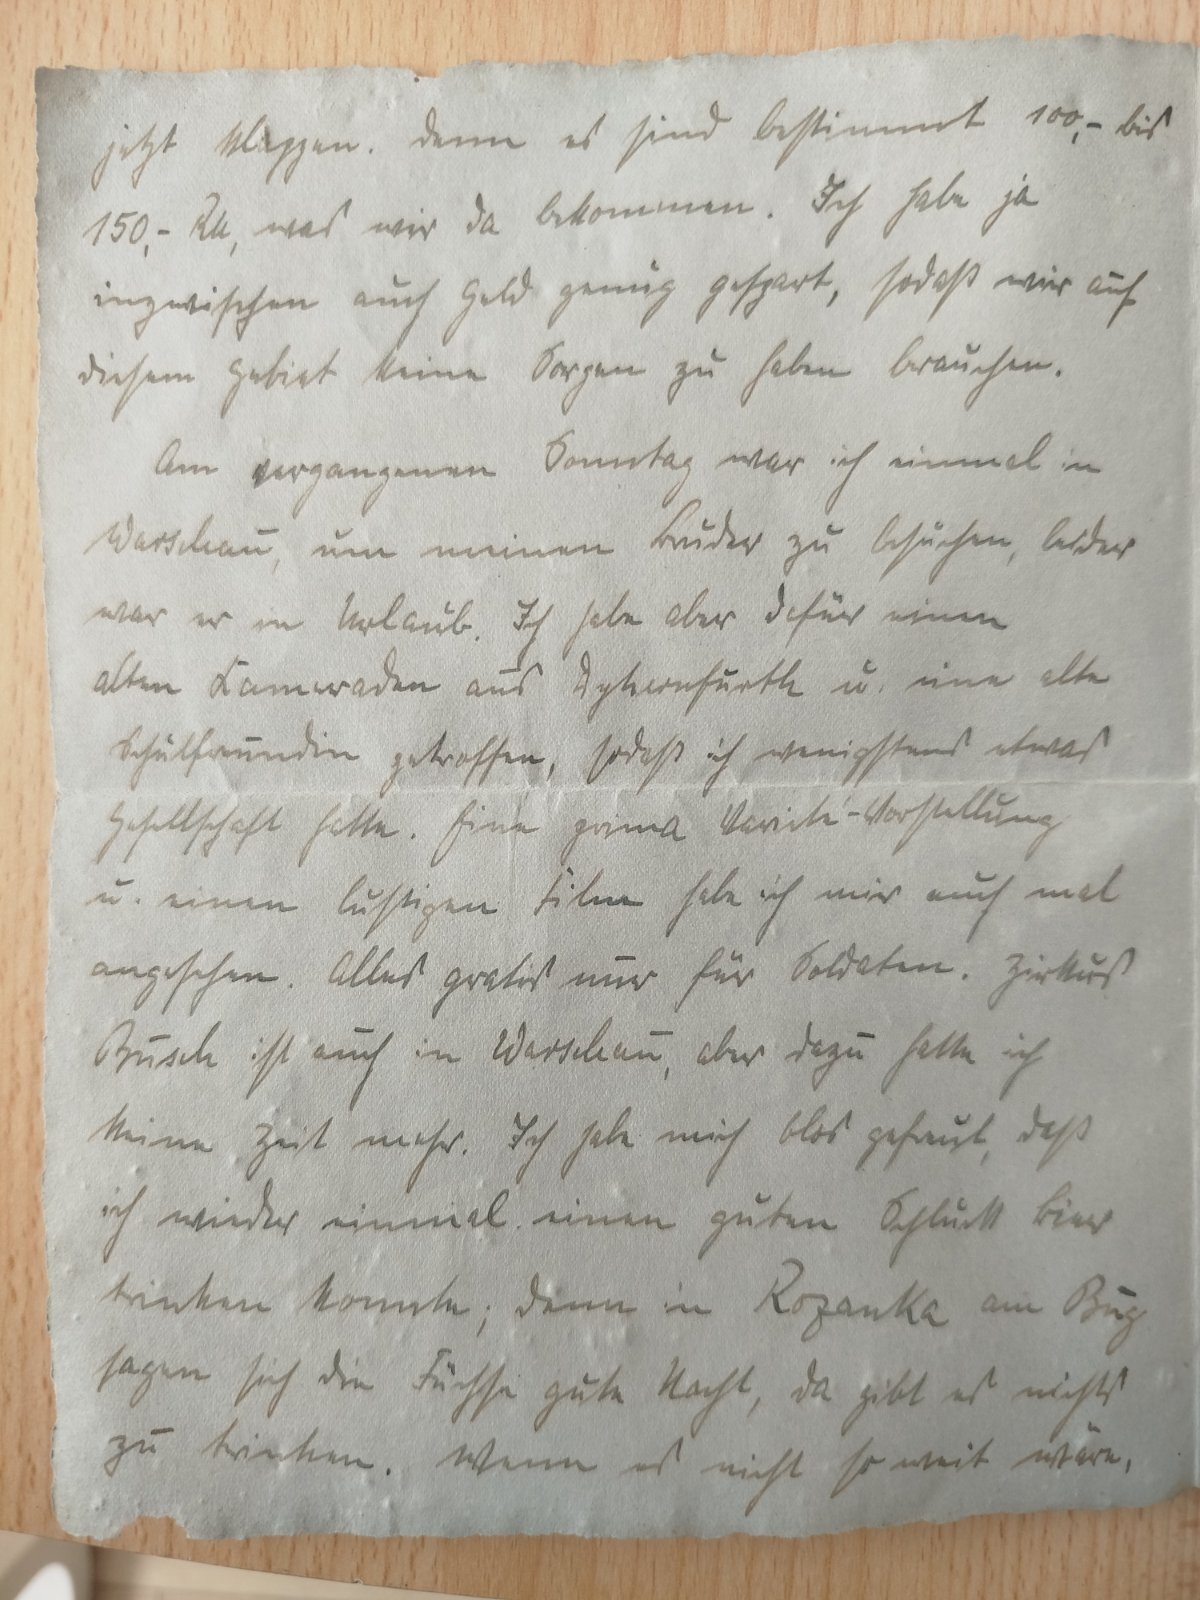 jetzt klappen. denn es sind bestimmt 100,- bis
150,- RM, was wir da bekommen. Ich habe ja
inzwischen auch Geld genug gespart, sodaß wir auf
diesem Gebiet keine Sorgen zu haben brauchen.
Am vergangenen Sonntag war ich einmal in
Warschau, um meinen Bruder zu besuchen, leider
war er in Urlaub. Ich habe aber dafür einen
alten Kameraden aus Dyhernfurth u. eine alte
Schulfreundin getroffen, sodaß ich wenigstens etwas
Gesellschaft hatte. Eine prima Varieté-Vorstellung
u. einen lustigen Film habe ich mir auch mal
angesehen. Alles gratis nur für Soldaten. Zirkus
Busch ist auch in Warschau, aber dazu hatte ich
keine Zeit mehr. Ich habe mich blos gefreut, daß
ich wieder einmal einen guten Schluck Bier
trinken konnte; denn in Rozanka am Bug
sagen sich die Füchse gute Nacht, da gibt es nichts
zu trinken. Wenn es nicht so weit wäre,